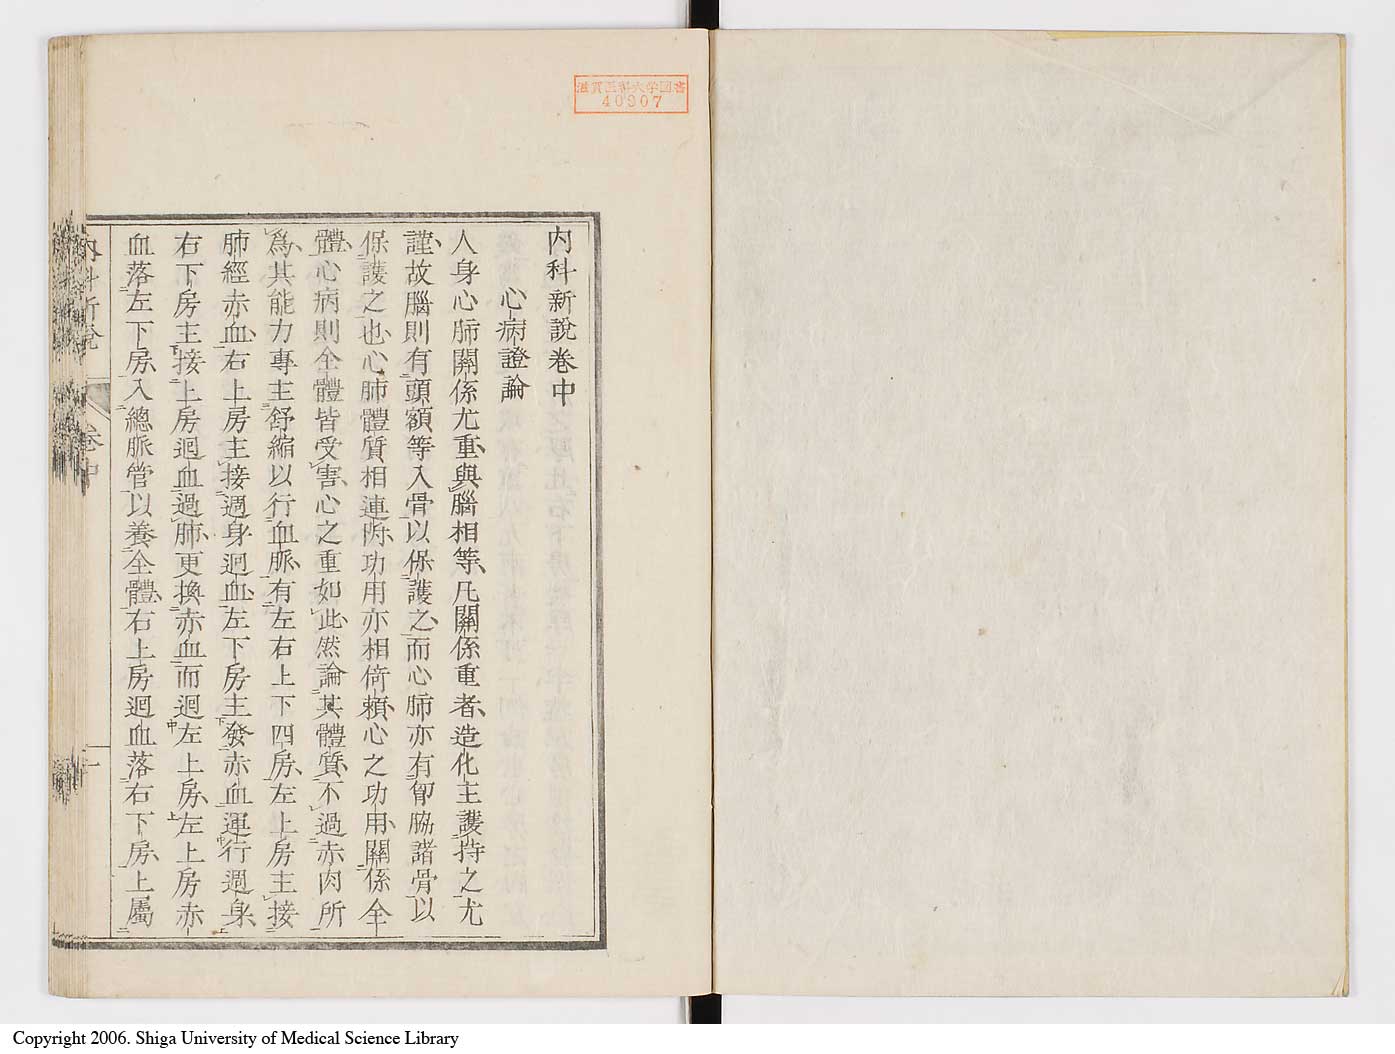 滋賀医科大学図書
40907
内科新說卷中
心病證論
人身心肺關係尤重、與腦相等、凡關係重者、造化主護持之尤
謹、故腦則有頭額等入骨以保護之、而心肺亦有胷脇諸骨以
保護之也、心肺體質相連附、功用亦相倚賴、心之功用、關係全
體、心病則全體皆受害、心之重如此、然論其體質、不過赤肉所
爲、其能力專主舒縮以行血脈、有左右上下四房、左上房主接
肺經赤血、右上房主接週身迴血、左下房主發赤血運行週身、
右下房主接上房迴血過肺、更換赤血而迴左上房、左上房赤
血落左下房、入總脈管以養全體、右上房迴血落右下房、上屬
內科新說
卷中
一
Copyright 2006. Shiga University of Medical Science Library